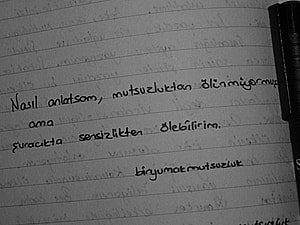 Nasıl anlatsam, mutsuzluktan ölünmüyormuş
ama
şuracıkta sensizlikten ölebilirim.
biryumakmutsuzluk